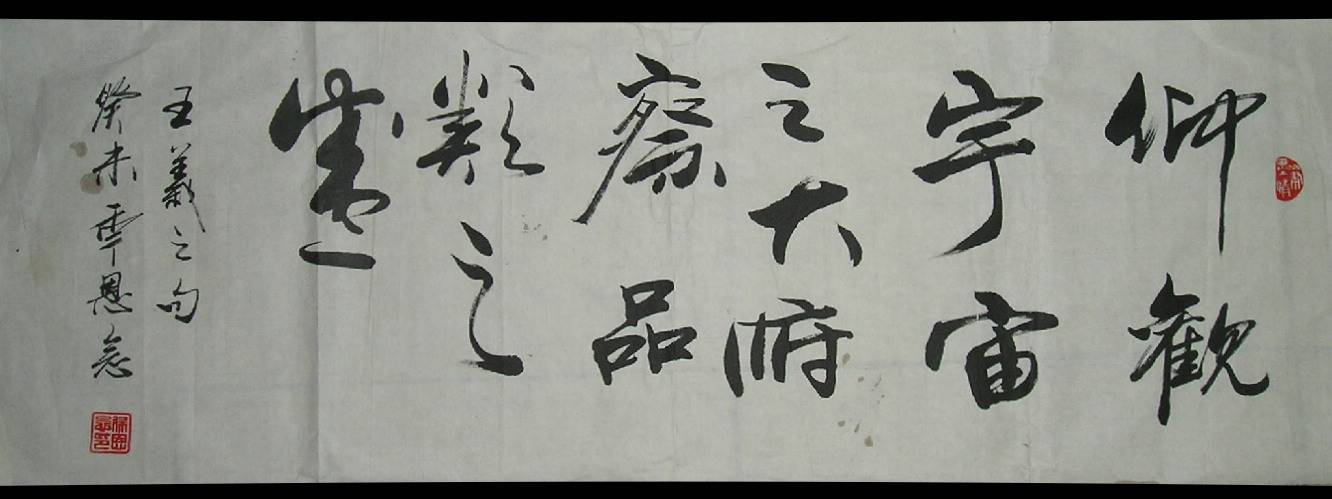 仰觀
宇宙
之大俯
察品
類之
盛
王羲之句
癸未雪恩念